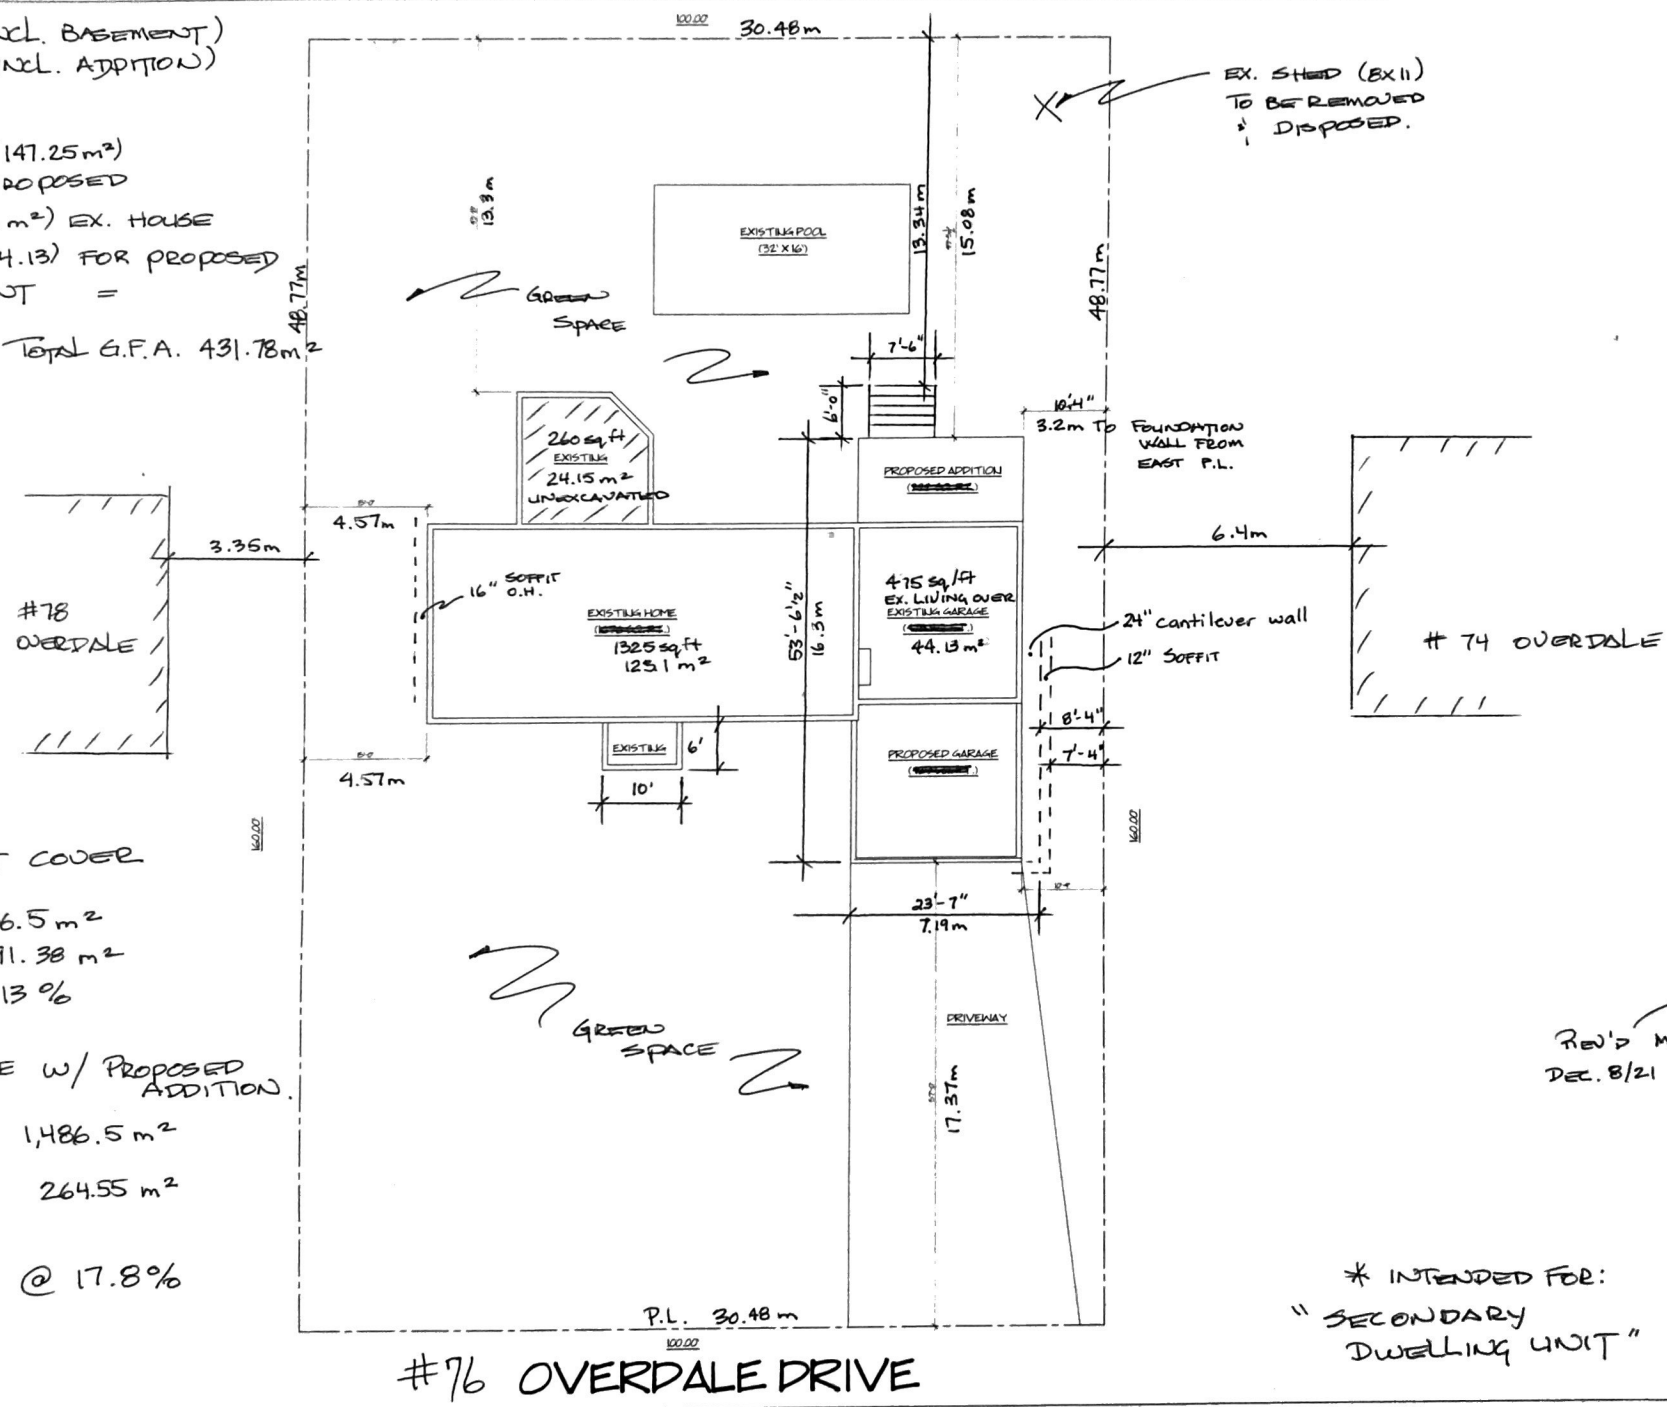 NCL. BASEMENT)
NCL. ADDITION)
147.25m²)
ROPOSED
m²) EX. HOUSE
4.13) FOR PROPOSED
NT =
TOTAL G.F.A. 431.78m²
100.00
30.48m
EX. SHED (8X11)
TO BE REMOVED
& DISPOSED.
13.3m
EXISTING POOL
(32' X 16')
13.34m
15.08m
48.77m
48.77m
GREEN
SPACE
7'-6"
6'-0"
10'4"
3.2m TO FOUNDATION
WALL FROM
EAST P.L.
260 sq ft
EXISTING
24.15 m²
UNEXCAVATED
PROPOSED ADDITION
4.57m
3.35m
6.4m
16" SOFFIT
O.H.
#78
OVERDALE
EXISTING HOME
1325 sq ft
123.1 m²
53'-6½"
16.3m
475 sq/ft
EX. LIVING OVER
EXISTING GARAGE
44.13 m²
24" cantilever wall
12" SOFFIT
# 74 OVERDALE
8'-4"
7'-4"
EXISTING
6'
10'
PROPOSED GARAGE
4.57m
160.00
160.00
T COVER
6.5 m²
91.38 m²
13 %
23'-7"
7.19m
GREEN
SPACE
DRIVEWAY
17.37m
E W/ PROPOSED
ADDITION.
1,486.5 m²
264.55 m²
@ 17.8%
REV'D M
DEC. 8/21
* INTENDED FOR:
" SECONDARY
DWELLING UNIT"
P.L. 30.48m
100.00
#76 OVERDALE DRIVE